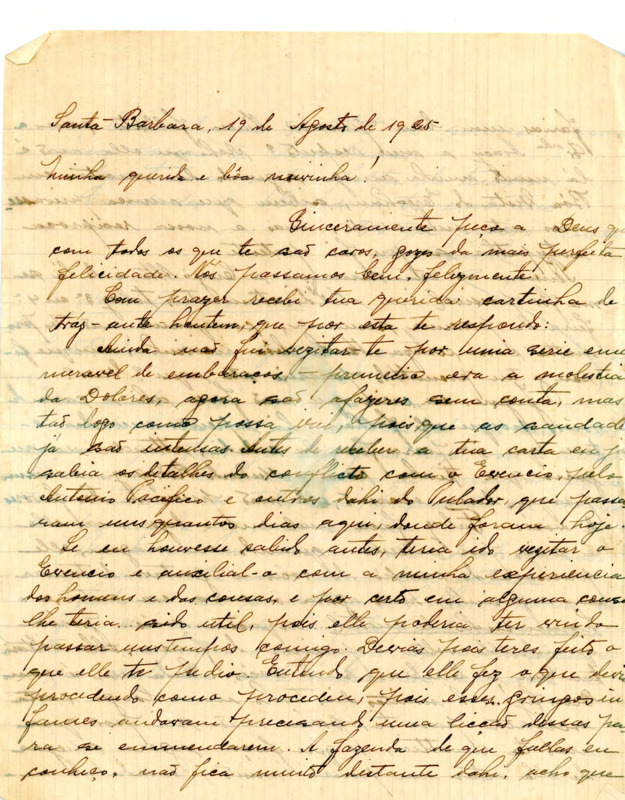 Santa Barbara, 19 de Agosto de 1925
Minha querida e bôa noivinha!
Sinceramente peço a Deus q
com todos os que te saõ caros, gozes da mais perfeita
felicidade. Nós passamos bem, felizmente.
Com prazer recebi tua querida cartinha de
tráz-ante-hontem, que por esta te respondo:
Ainda naõ fui vezitar-te por uma serie enu
meravel de embaraços - primeiro era a molestia
da Dolores, agora saõ afazeres sem conta, mas
taõ logo como possa vou, pois que as saudade
já saõ intensas. Antes de receber a tua carta eu já
sabia os detalhes do conflicto com o Evencio, pelo
Antonio Pacifico e outros dahi do Pulador, que passa
ram uns quantos dias aqui, donde foram hoje.
Se eu houvesse sabido antes, teria ido vezitar o
Evencio e auxilial-o com a minha experiencia
dos homens e das cousas, e por certo em alguma cousa
lhe teria sido util, pois elle poderia ter vindo
passar uns tempos comigo. Devias pois teres feito o
que elle te pedio. Entendo que elle fez o que devia
procedendo como procedeu, - pois esses gringos in
fames andavam precisando uma licçaõ dessas pa-
ra se emmendarem. A fazenda de que fallas eu
conheço, naõ fica muito distante dahi, acho que